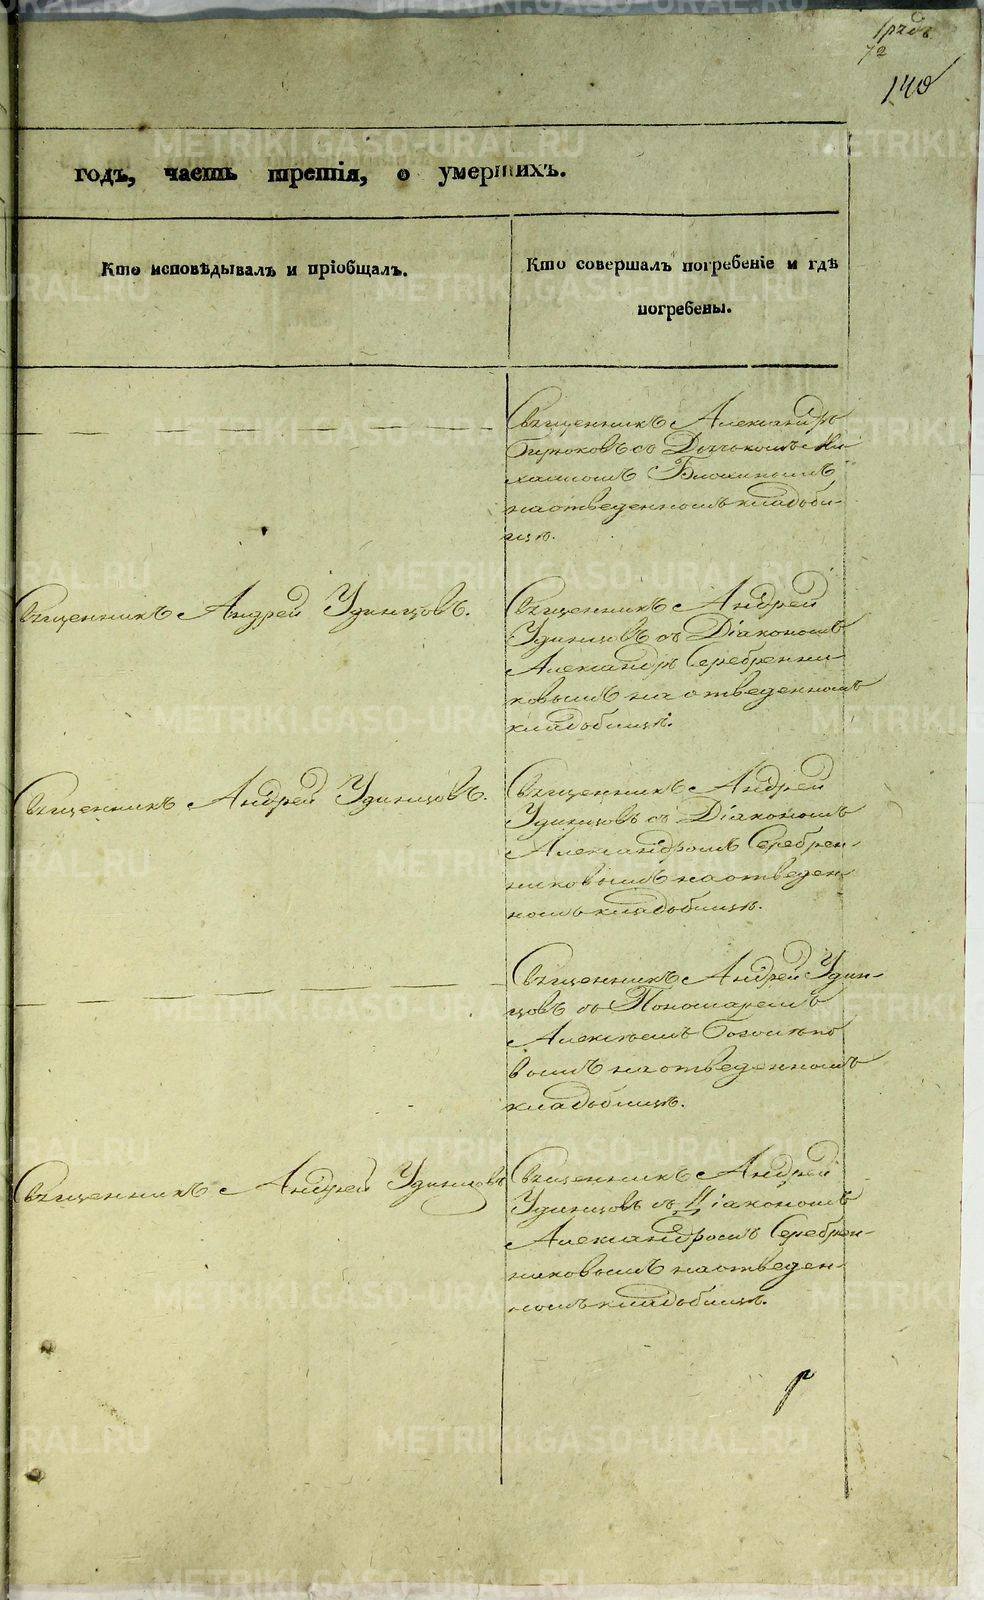 140
годъ, часть третія, о умершихъ.
Кто исповѣдывалъ и пріобщалъ.
Кто совершалъ погребеніе и гдѣ
погребены.
Священникъ Александръ
Бирюковъ съ Дьячкомъ Ми-
хаиломъ
на отведенномъ кладби-
щѣ.
Священникъ Андрей Удинцовъ.
Священникъ Андрей
Удинцовъ съ Діакономъ
Александръ Серебренни-
ковымъ на отведенномъ
кладбищѣ.
Священникъ Андрей Удинцовъ.
Священникъ Андрей
Удинцовъ съ Діакономъ
Александромъ Серебрен-
никовымъ на отведен-
номъ кладбищѣ.
Священникъ Андрей Удин-
цовъ съ Пономаремъ
Алексѣемъ Боголѣпо
вымъ на отведенномъ
кладбищѣ.
Священникъ Андрей Удинцовъ
Священникъ Андрей
Удинцовъ съ Діакономъ
Александромъ Серебрен-
никовымъ на отведен-
номъ кладбищѣ.
METRIKI.GASO-URAL.RU